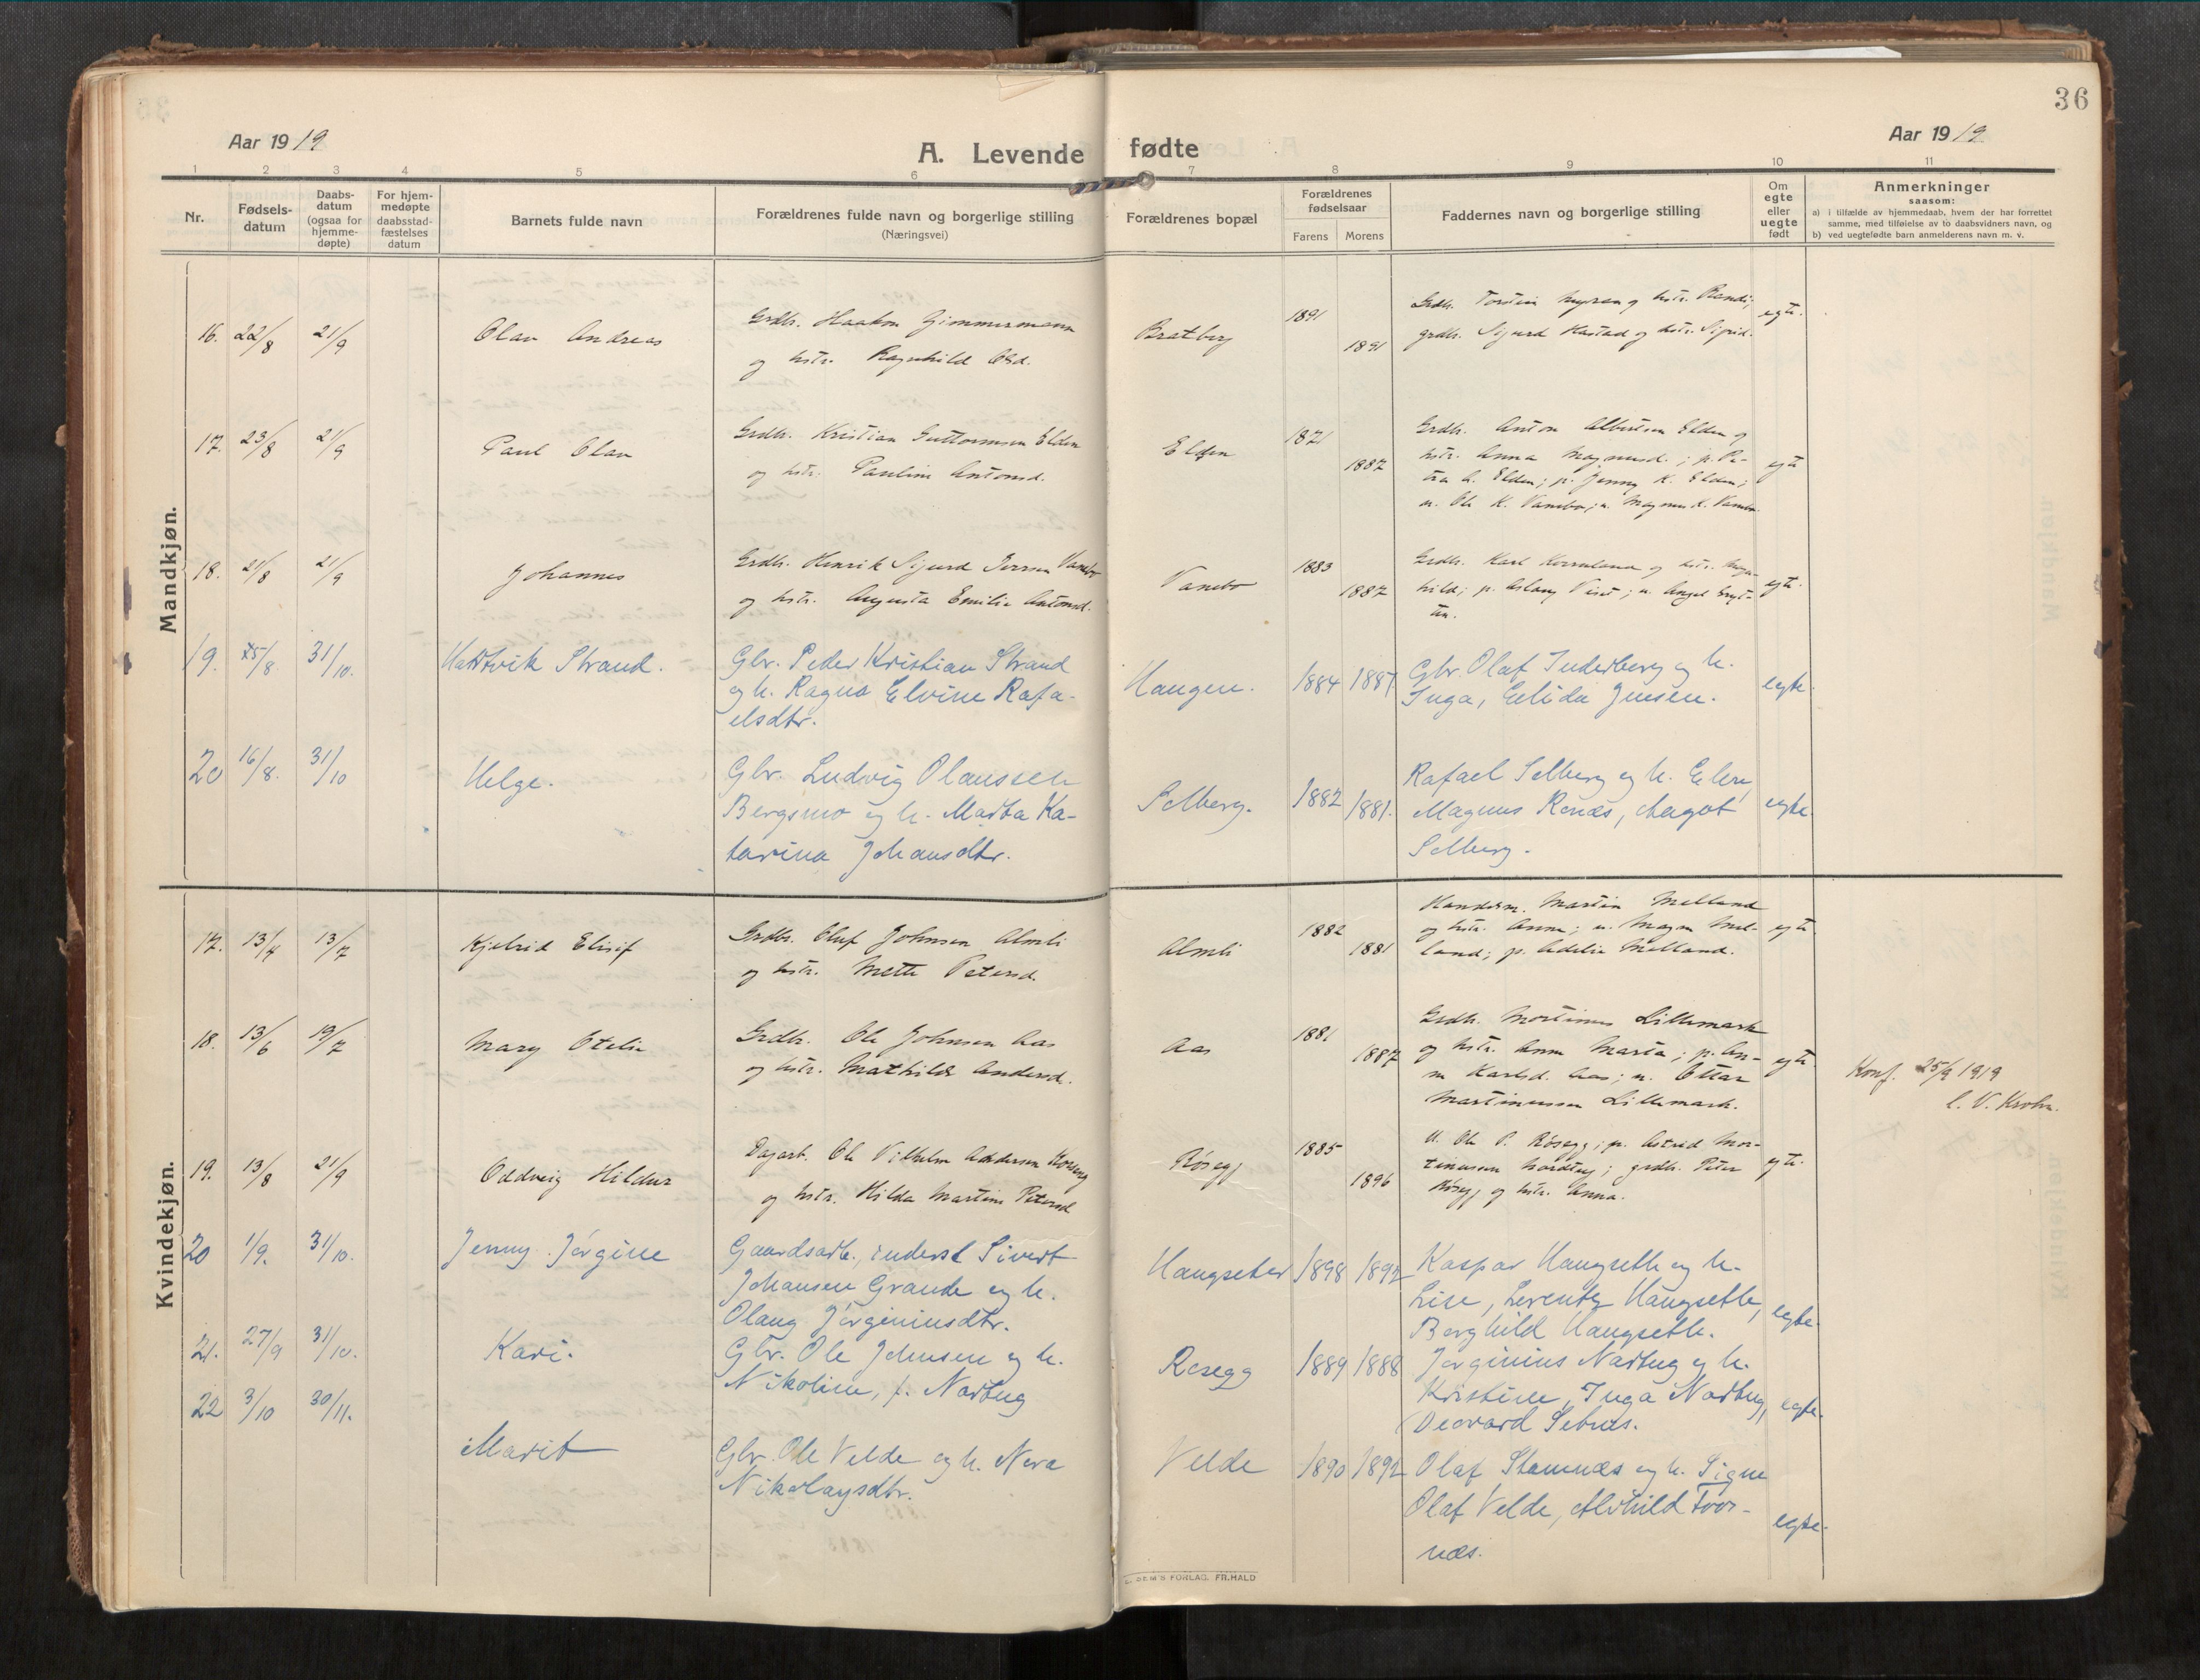 36
Aar 1919
A. Levende fødte
Aar 1919
1 2 3 4 5 6 7 8 9 10 11
Nr.
Fødsels-
datum
Daabs-
datum
(ogsaa for
hjemme-
døpte)
For hjem-
medøpte
daabsstad-
fæstelses
datum
Barnets fulde navn
Forældrenes fulde navn og borgerlige stilling
(Næringsvei)
Forældrenes bopæl
Forældrenes
fødselsaar
Farens Morens
Faddernes navn og borgerlige stilling
Om
egte
eller
uegte
født
Anmerkninger
saasom:
a) i tilfælde av hjemmedaab, hvem der har forrettet
samme, med tilføielse av to daabsvidners navn, og
b) ved uegtefødte barn anmelderens navn m. v.
Mandkjøn.
16. 22/8 21/9 Olav Andreas
Grdbr. Haakon Zimmermann
og hstr. Ragnhild Olsd.
Bratberg 1891 1891
Grdbr. Torstein Myran og hstr. Randi;
grdbr. Sigurd Kastad og hstr. Sigrid.
egte.
17. 23/8 21/9 Paul Olav
Grdbr. Kristian Guttormsen Elden
og hstr. Pauline Antonsd.
Elden 1871 1887
Grdbr. Anton Albertsen Elden og
hstr. Anna Magnusd.; p. Pe-
tra A. Elden; p. Jenny K. Elden;
u. Ole K. Vansbo; u. Magnus K. Vansbo
egte
18. 21/8 21/9 Johannes
Grdbr. Henrik Sigurd Iversen Vansbo
og hstr. Augusta Emilie Antonsd.
Vansbo 1883 1887
Grdbr. Karl og hstr.
hild; p. Aslaug Viset; u.
egte.
19. 25/8. 31/10. Hartvik Strand.
Gbr. Peder Kristian Strand
og h. Ragna Elvine Rafa-
elsdtr.
Haugen. 1884 1887
Gbr. Olaf Inderberg og h.
Inga, Elida Jensen.
egte.
20 16/8. 31/10 Helge.
Gbr. Ludvig Olaussen
Bergsmo og h. Marta Ka-
tarina Johansdtr.
Selberg. 1882 1881.
Rafael Selberg og h. Elen,
Magnus Renås, Aagot
Selberg.
egte.
Kvindekjøn.
17. 13/4 13/7 Kjelrid Elisif
Grdbr. Oluf Johnsen Almli
og hstr. Mette Petersd.
Almli 1882 1881
Handelsm. Martin Melland
og hstr. Anna; u. Magne Mel-
land; p. Adelie Melland.
egte.
18. 13/6 19/7 Mary Otelie
Grdbr. Ole Johnsen Aas
og hstr. Mathilde Andersd.
Aas 1881 1887
Grdbr. Mortinus Lillemark
og hstr. Anne Marta; p. An-
na Karlsd. Aas; u. Ottar
Martinussen Lillemark.
egte.
Konf. 25/9 1919
C. V. Krohn.
19. 13/8 21/9 Oddveig Hildur
Dagarb. Ole Vilhelm Andersen
og hstr. Hilda Martine Petersd
Røsegg 1885 1896
U. Ole P. Røsegg; p. Astrid Mor-
tinussen Nordtug; grdbr. Peter
Røsegg og hstr. Anna.
egte.
20 1/9. 31/10. Jenny Jørgine
Gaardsarb. inderst Sivert
Johansen Grande og h.
Olaug Jørginiusdtr.
Haugseter 1898 1892
Kaspar Haugseth og h.
Lise, Lorentz Haugseth,
Borghild Haugseth.
egte.
21. 27/9 31/10. Kari.
Gbr. Ole Johnsen og h.
Nikoline, f. Nartug
Rosegg 1889 1888
Jørginius Nartug og h.
Kristine, Inga Nartug,
Deovard Setnes.
egte.
22 3/10 30/11. Marit
Gbr. Ole Velde og h. Nora
Nikolaysdtr.
Velde 1890 1892
Olaf Stamnæs og h. Signe
Olaf Velde, Alvhild Tvor-
næs.
egte.
SEM'S FORLAG, FR.HALD